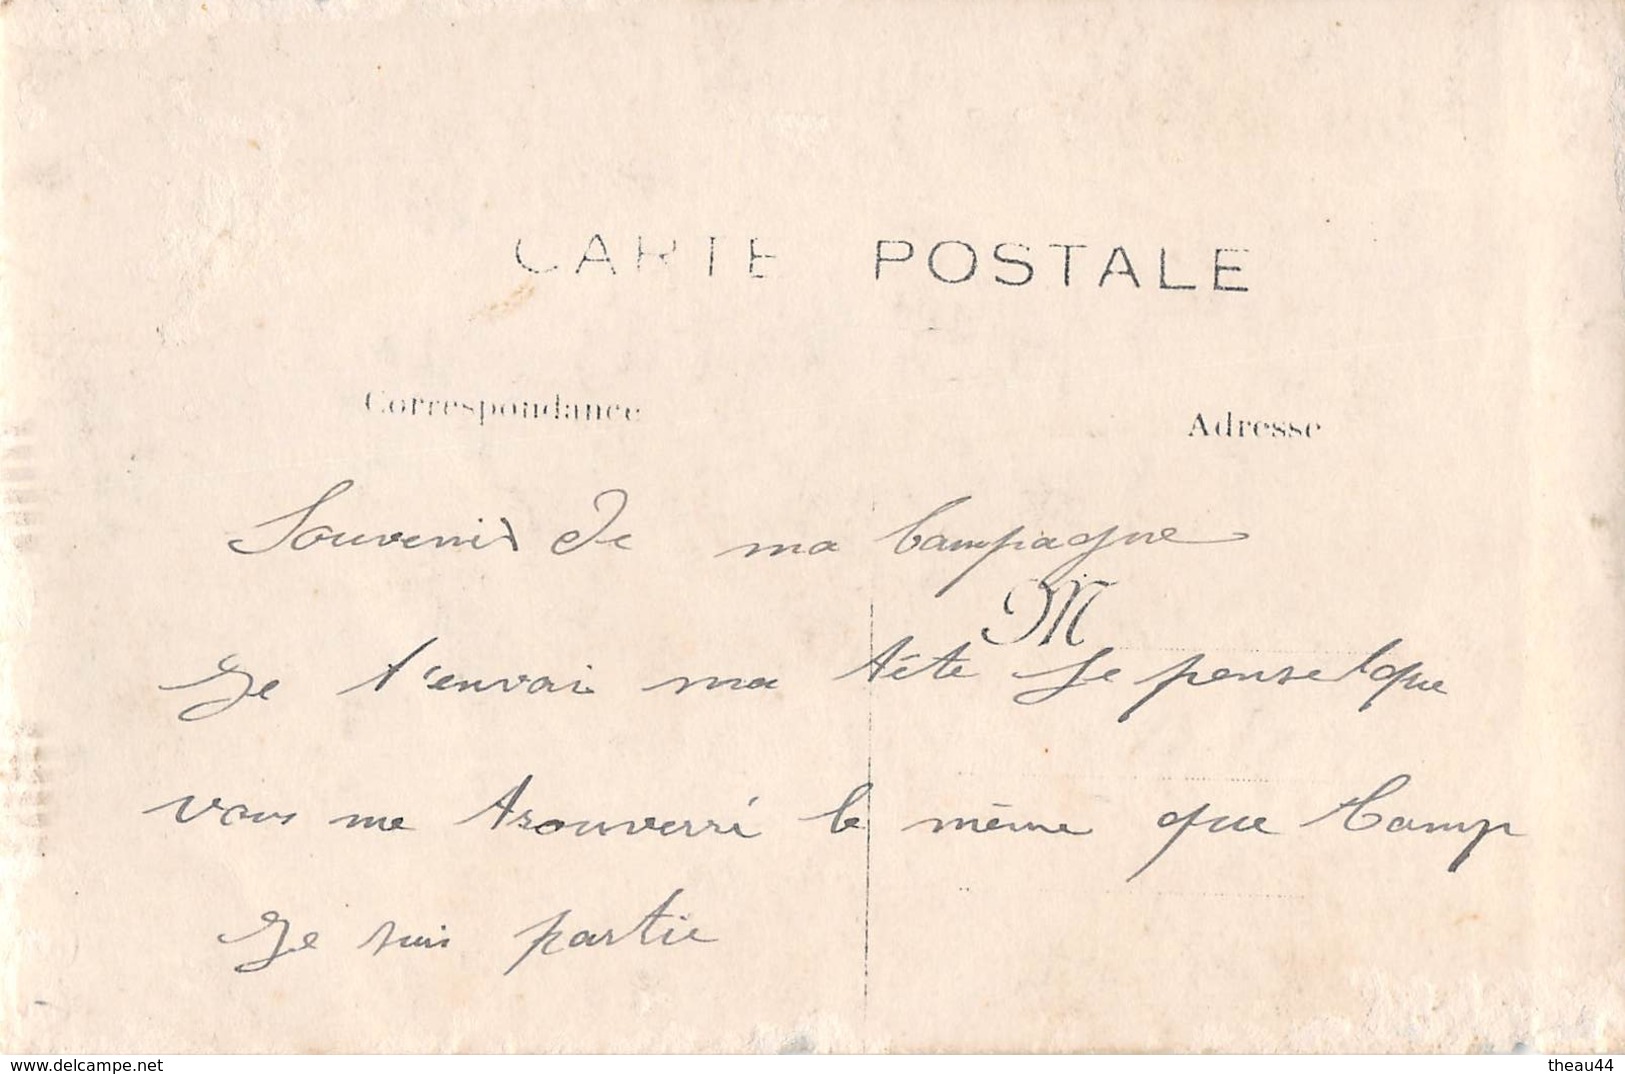 CARTE POSTALE
Correspondance
Adresse
Souvenir de ma Campagne
M
Je t'envoi ma tête Je pense que
vous me trouverré le même que Camp
Je suis partie
www.delcampe.net
theau44